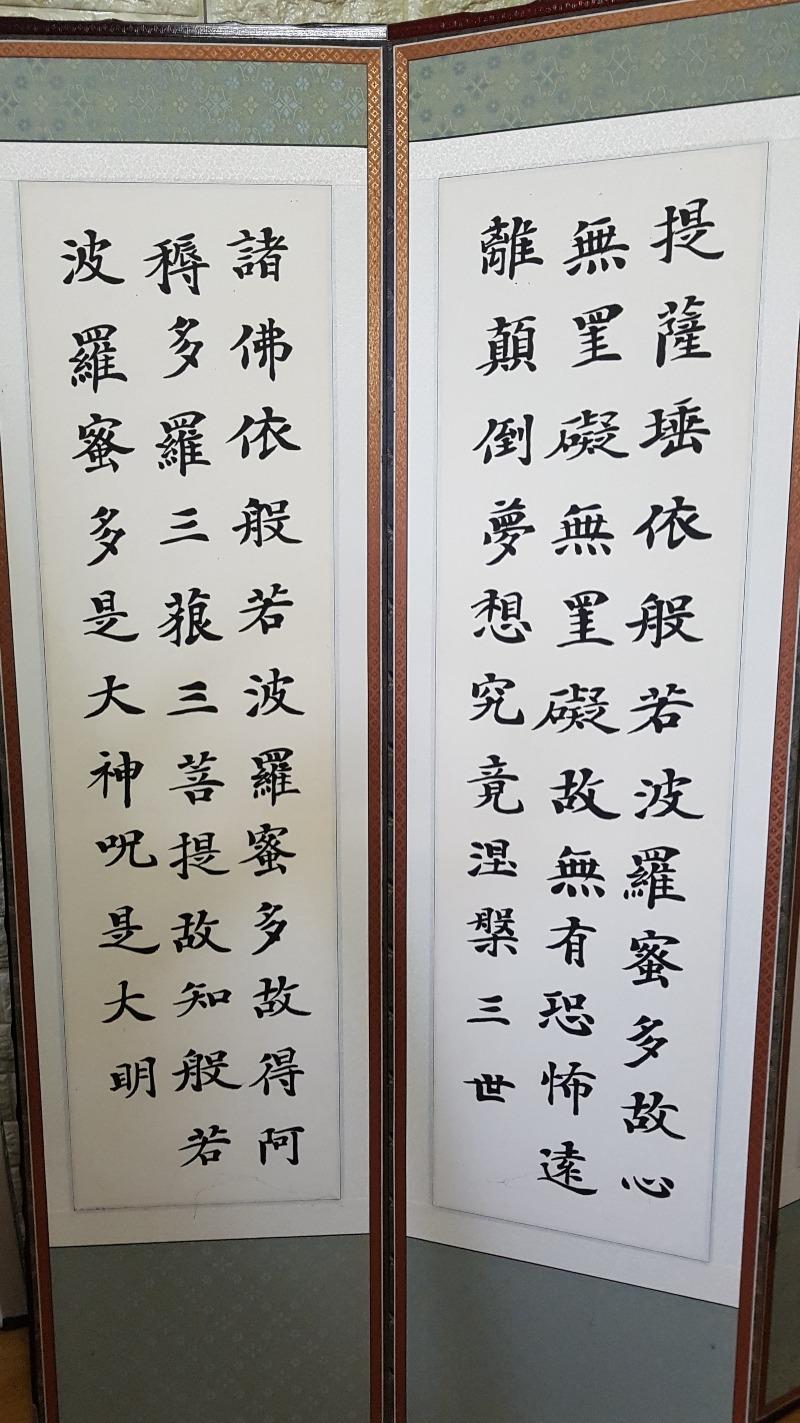 提薩埵依般若波羅蜜多故心
無罣礙無罣礙故無有恐怖遠
離顛倒夢想究竟涅槃三世
諸佛依般若波羅蜜多故得阿
耨多羅三藐三菩提故知般若
波羅蜜多是大神呪是大明